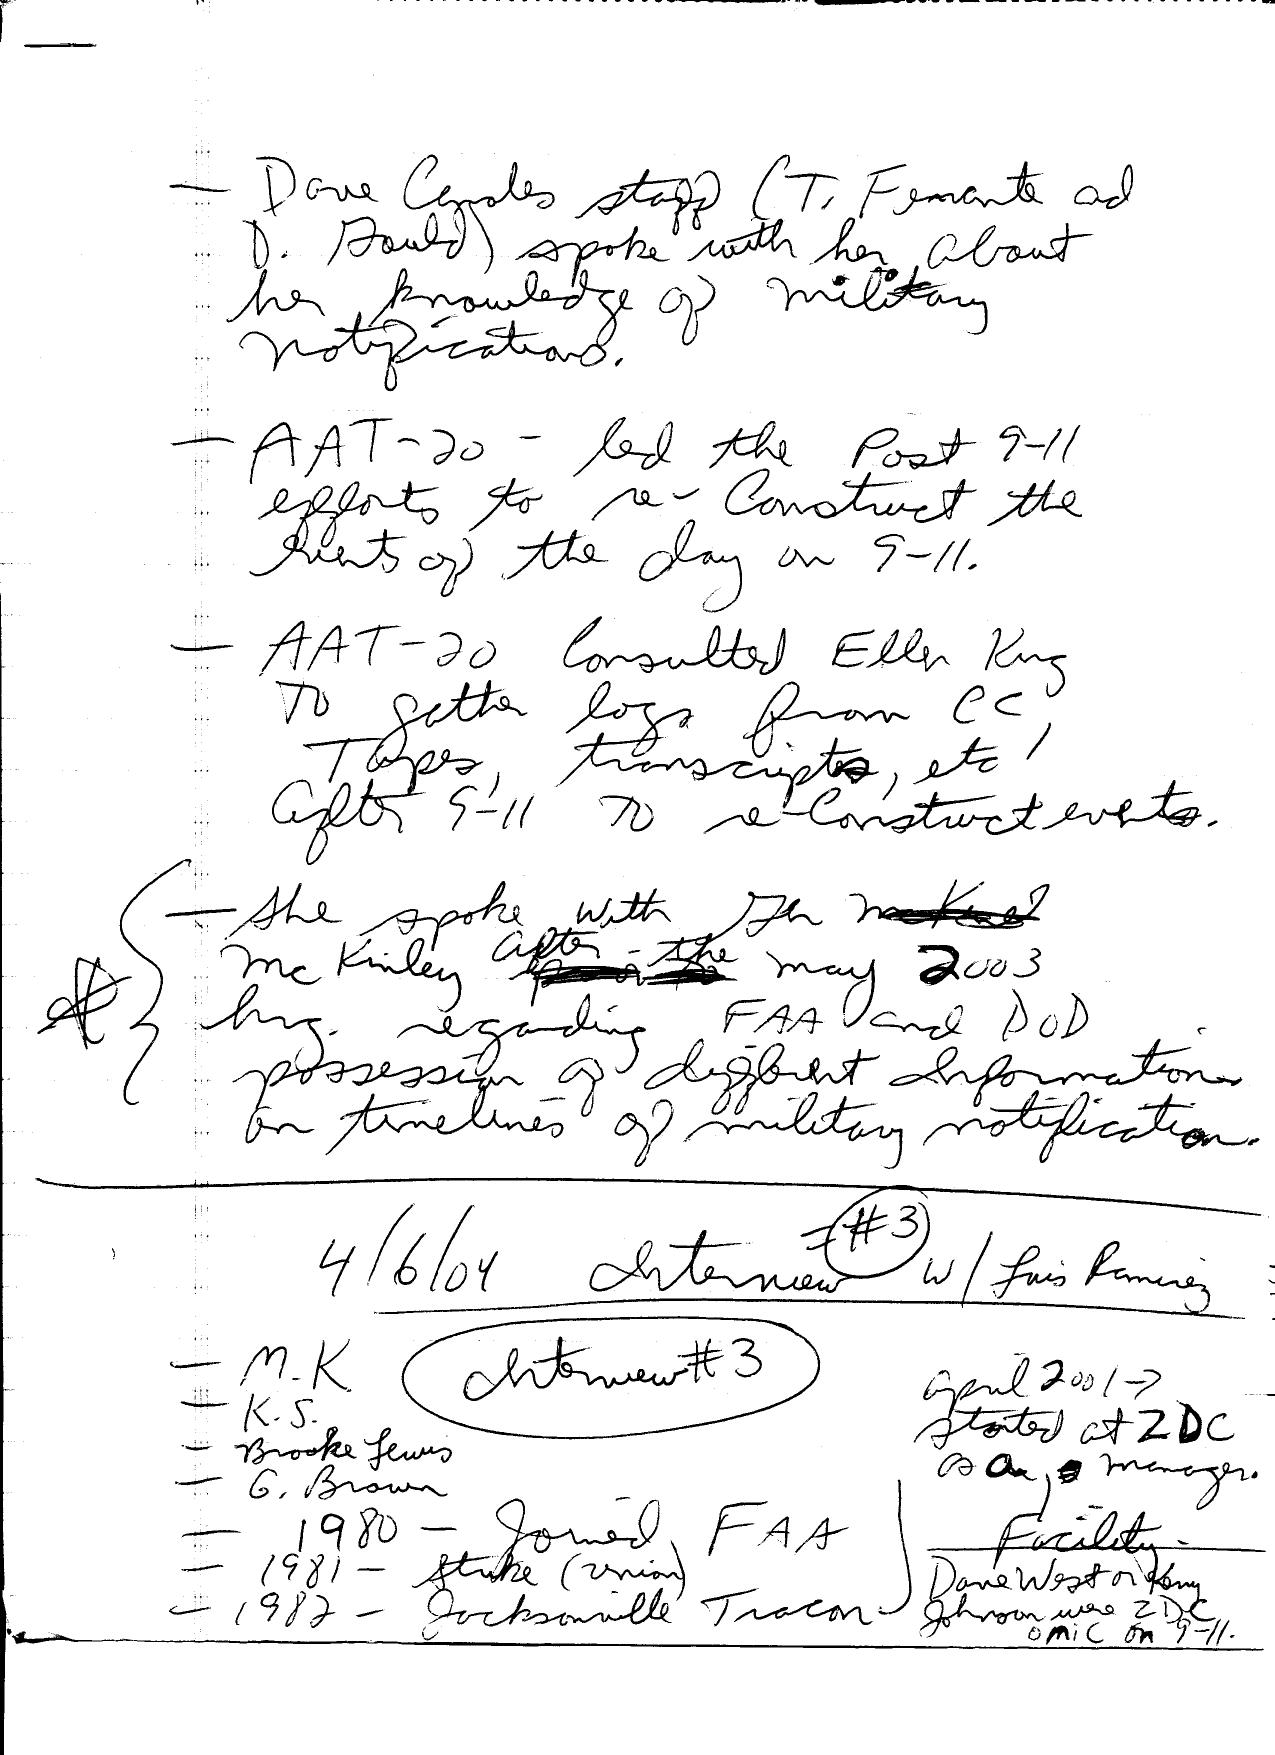 — Dave Canoles staff (T. Ferrante ad
D. Gould) spoke with her about
her knowledge of military
notifications.
— AAT-20 - led the Post 9-11
efforts to re-Construct the
events of the day on 9-11.
— AAT-20 Consulted Ellen King
To gather logs from CC,
Tapes, transcripts, etc
after 9-11 To re-Construct events.
— She spoke with Gen
McKinley after the May 2003
hrg. regarding FAA and DOD
possession of different Information
on timelines of military notification.
4/6/04 Interview #3 w/ Luis Ramirez
Interview #3
— M.K.
— K.S.
— Brooke Lewis
— G. Brown
— 1980 - Joined FAA
— 1981 - Strike (union)
— 1982 - Jacksonville Tracon
April 2001 →
started at ZDC
as a manager.
Facility
Dave West or Kerry
Johnson were ZDC
OMIC on 9-11.